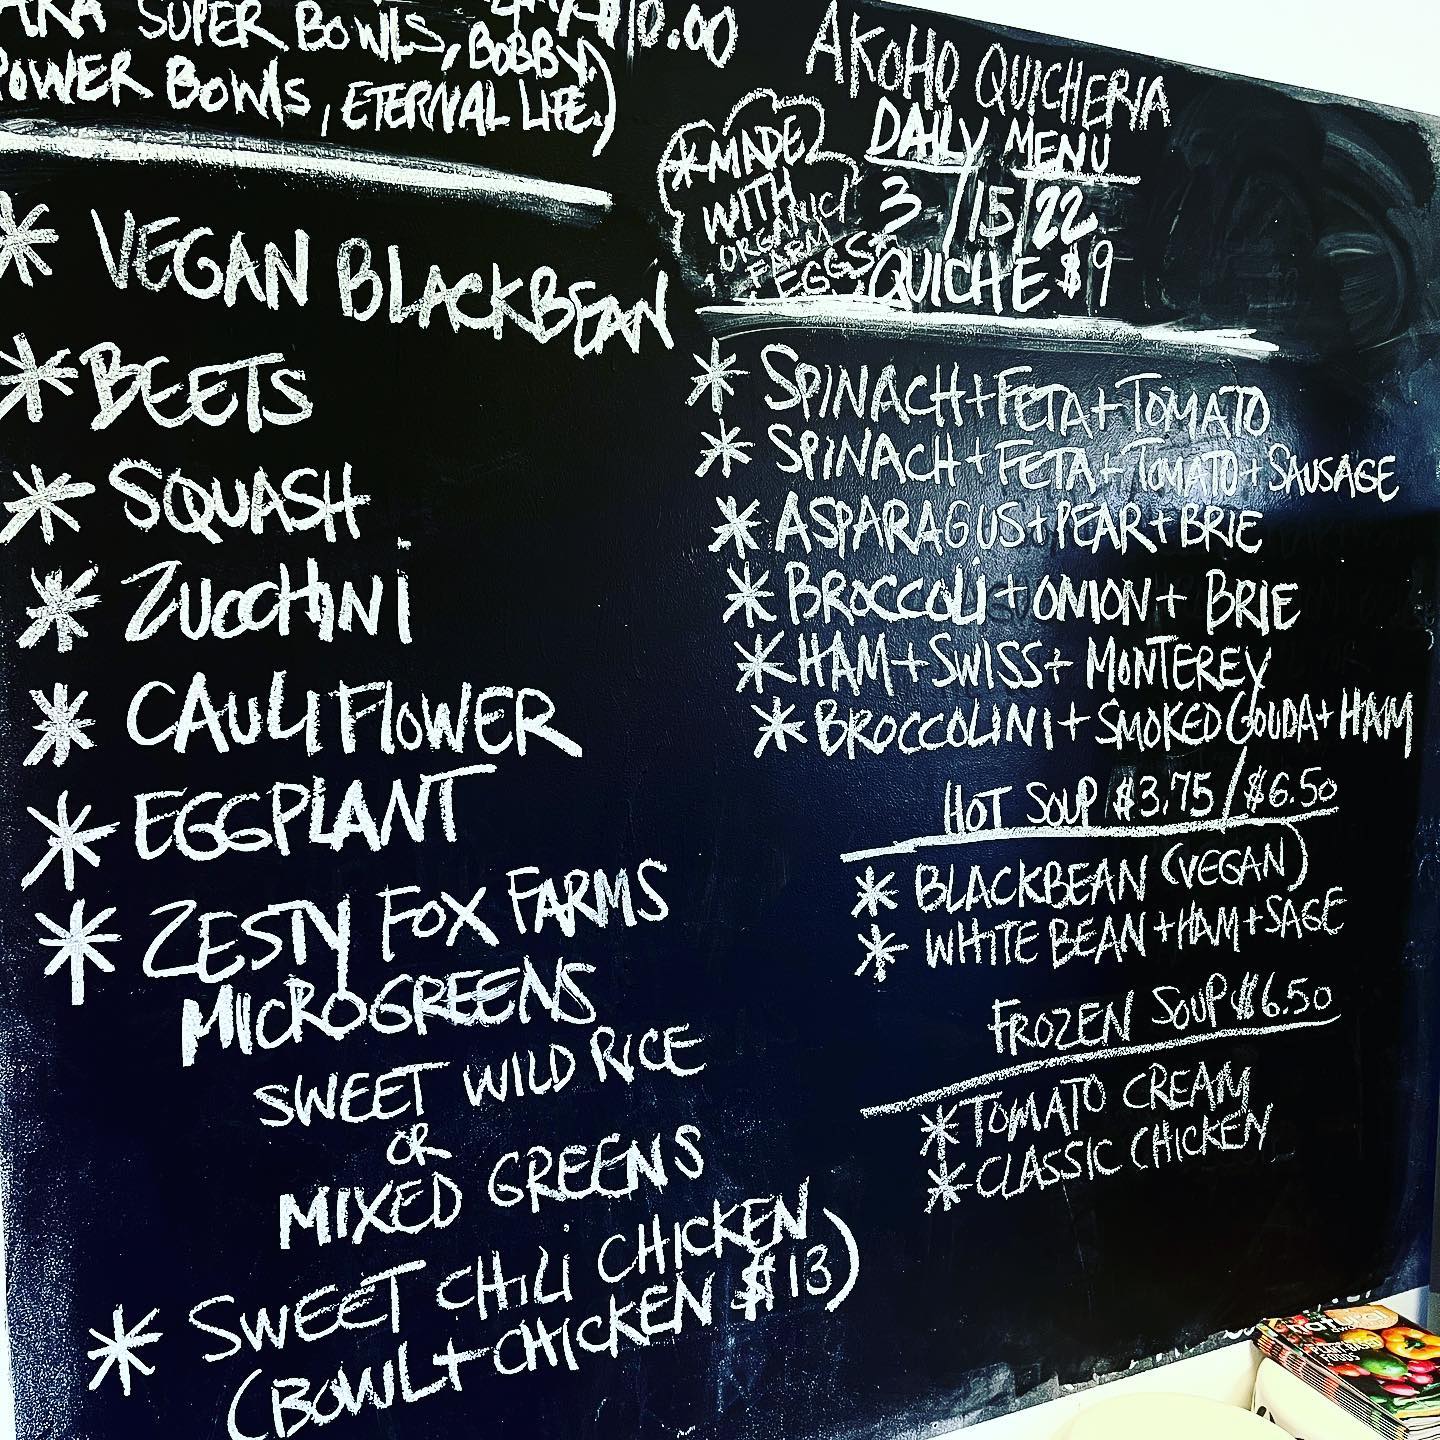 AKA SUPER BOWLS, BOBBY.
POWER BOWLS, ETERNAL LIFE.)
$10.00
* VEGAN BLACKBEAN
* BEETS
* SQUASH
* ZUCCHINI
* CAULIFLOWER
* EGGPLANT
* ZESTY FOX FARMS
MICROGREENS
SWEET WILD RICE
OR
MIXED GREENS
* SWEET CHILI CHICKEN
(BOWL + CHICKEN $13)
AKOHO QUICHERIA
DAILY MENU
3/15/22
QUICHE $9
*MADE
WITH
ORGANIC
FARM
EGGS*
* SPINACH + FETA + TOMATO
* SPINACH + FETA + TOMATO + SAUSAGE
* ASPARAGUS + PEAR + BRIE
* BROCCOLI + ONION + BRIE
* HAM + SWISS + MONTEREY
* BROCCOLINI + SMOKED GOUDA + HAM
HOT SOUP $3.75/$6.50
* BLACKBEAN (VEGAN)
* WHITE BEAN + HAM + SAGE
FROZEN SOUP $6.50
* TOMATO CREAM
* CLASSIC CHICKEN
natural